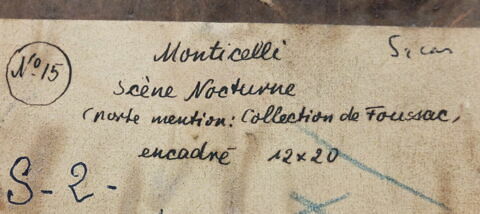 No 15
Monticelli
Scène Nocturne
(porte mention: Collection de Foussac,
encadré 12x20
S-2-